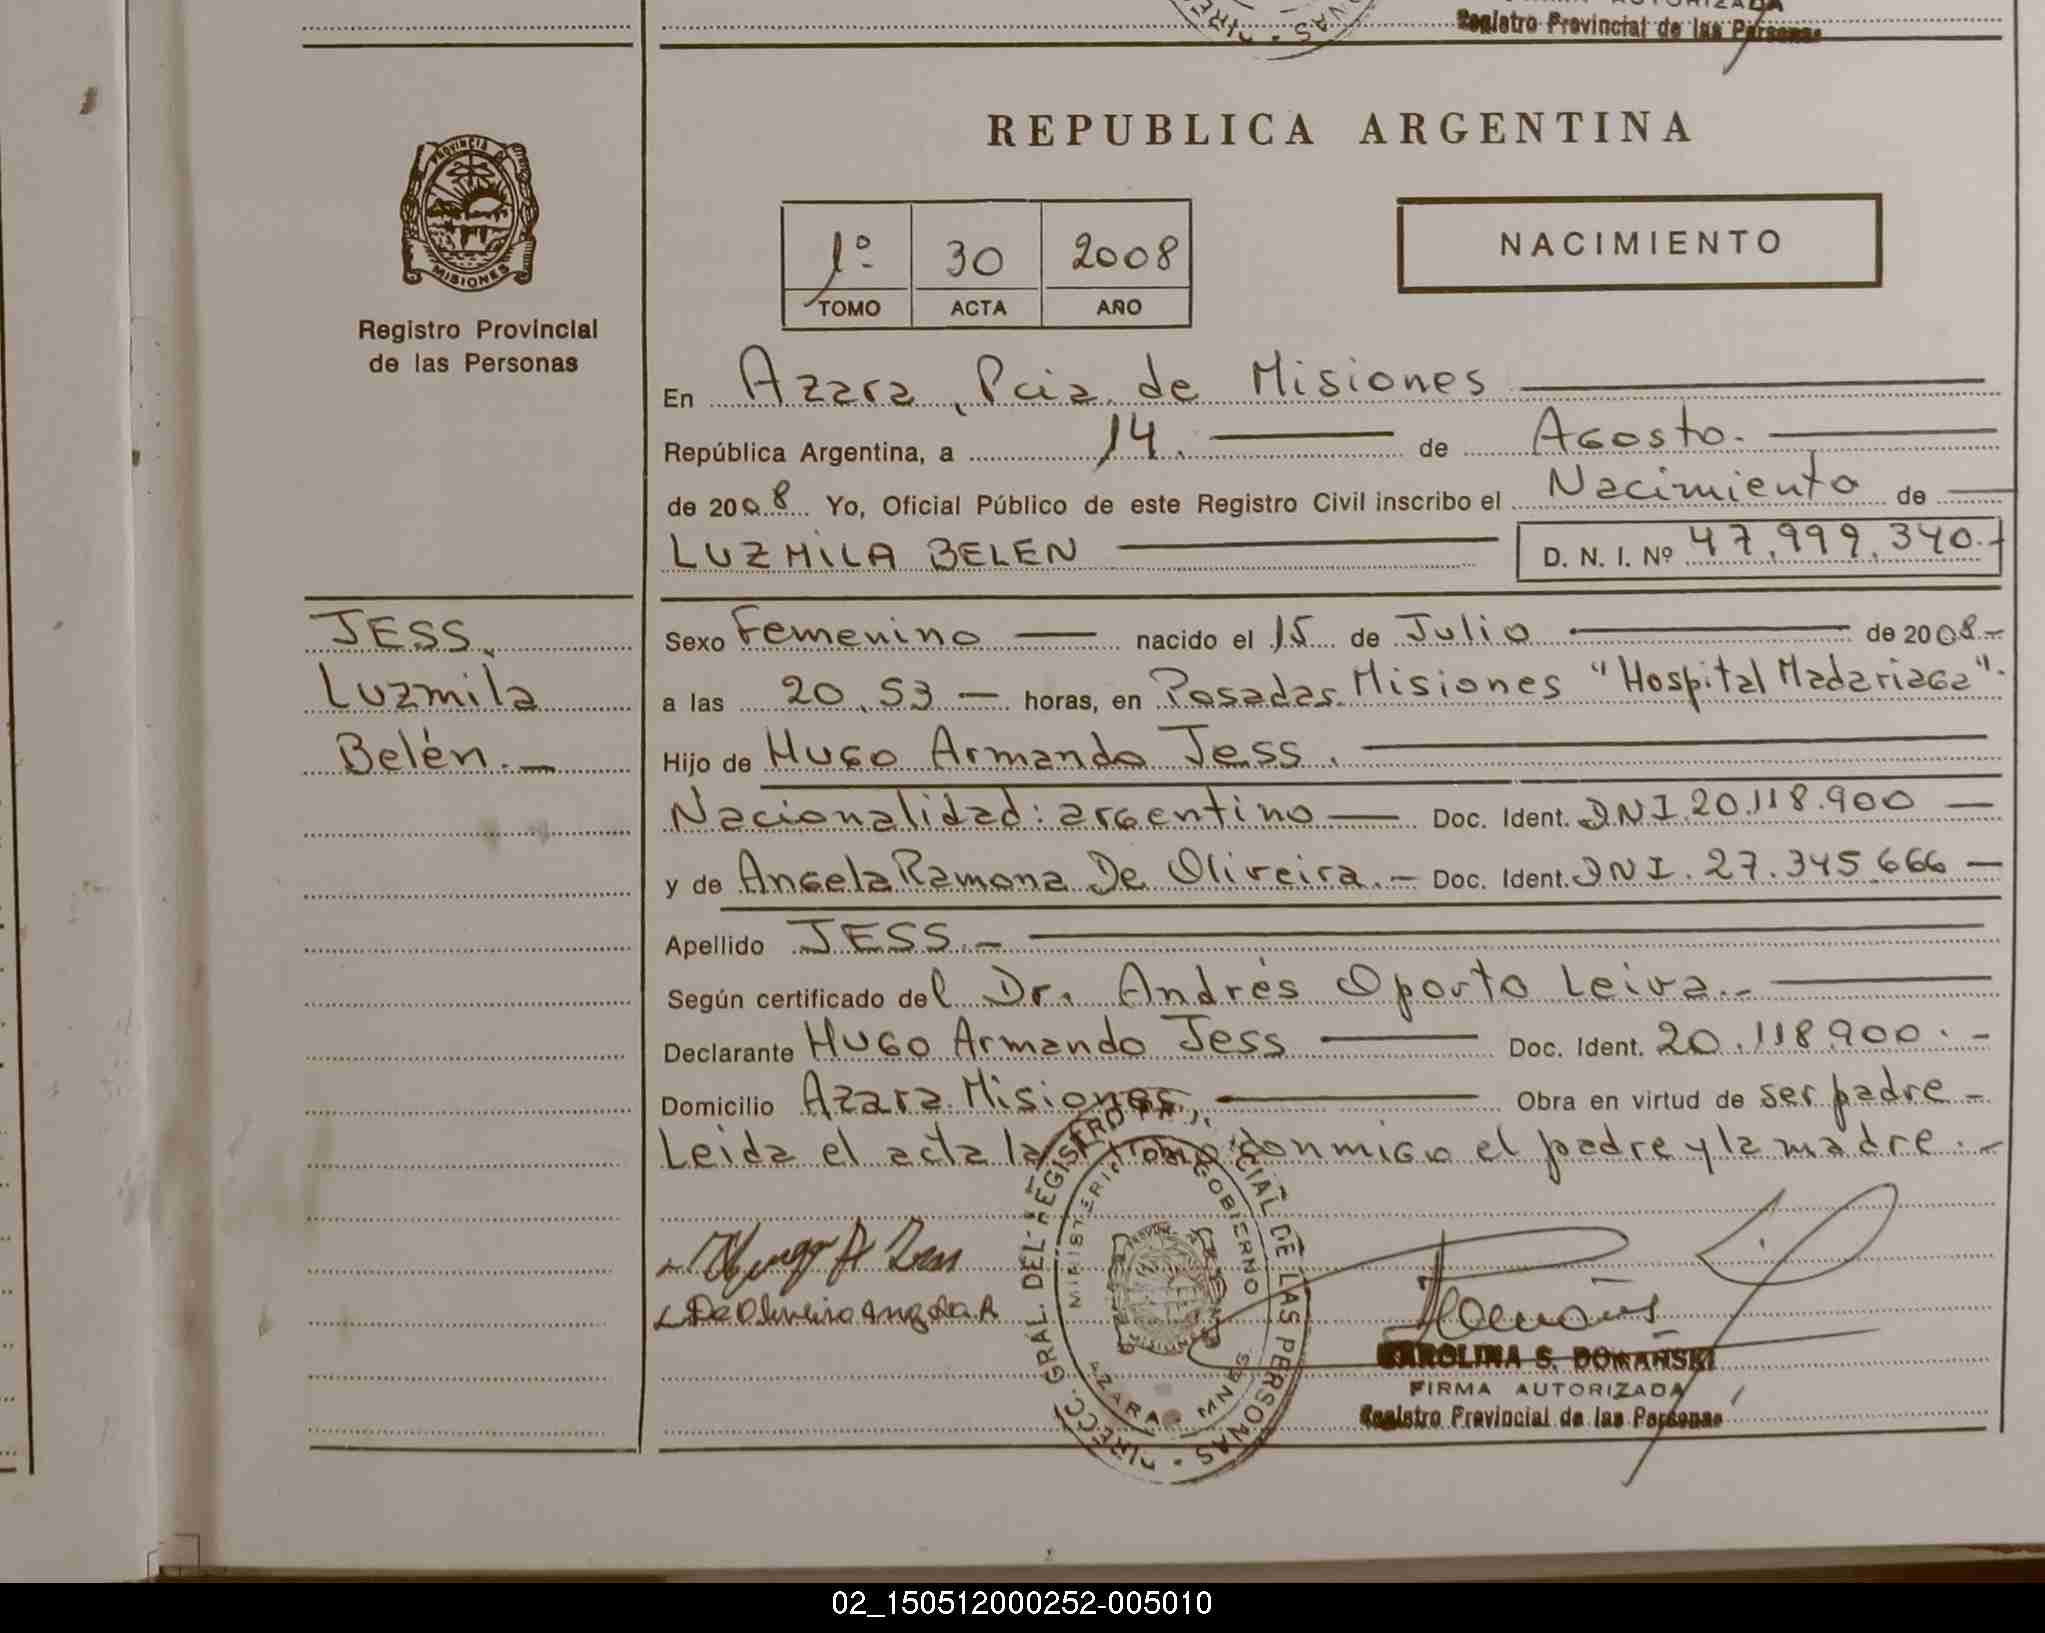 Registro Provincial de las Personas
REPUBLICA ARGENTINA
PROVINCIA DE
MISIONES
Registro Provincial
de las Personas
1º 30 2008
TOMO ACTA AÑO
NACIMIENTO
En Azara, Pcia. de Misiones
República Argentina, a 14. de Agosto.
de 2008 Yo, Oficial Público de este Registro Civil inscribo el Nacimiento de
LUZMILA BELEN D. N. I. Nº 47.999.340.-
JESS,
Luzmila
Belén.-
Sexo Femenino nacido el 15 de Julio de 2008.-
a las 20,53 horas, en Posadas. Misiones "Hospital Madariaga".
Hijo de Hugo Armando Jess.
Nacionalidad: argentino Doc. Ident. DNI.20.118.900
y de Angela Ramona De Oliveira.- Doc. Ident. DNI. 27.345.666
Apellido JESS.-
Según certificado del Dr. Andrés Oporto Leiva.-
Declarante Hugo Armando Jess Doc. Ident. 20.118.900.-
Domicilio Azara. Misiones, Obra en virtud de ser padre-
Leida el acta la firma conmigo el padre y la madre.-
Hugo A Jess
De Oliveira Angela R
DIRECC. GRAL. DEL REGISTRO PROVINCIAL DE LAS PERSONAS
MINISTERIO GOBIERNO
AZARA - MNES.
CAROLINA S. DOMAÑSKI
FIRMA AUTORIZADA
Registro Provincial de las Personas
02_150512000252-005010